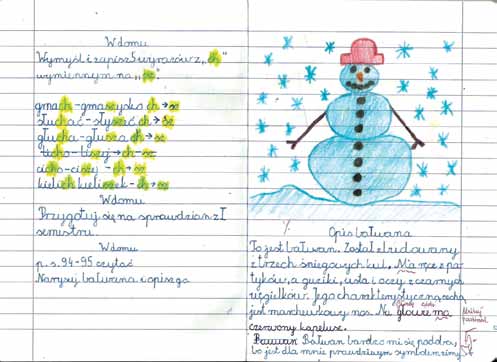 W domu
Wymyśl i zapisz 5 wyrazów z „ch"
wymiennym na „sz".
gmach-gmaszysko ch→sz
słuchać-słyszeć ch→sz
głucha-głusza ch→sz
ticho-ciszej→ch-sz
cicho-ciszej-ch→sz
kielich kieliszek-ch→sz
W domu
Przygotuj się na sprawdzian z I
semestru.
W domu
p. s. 94-95 czytać
Narysuj bałwana i opisz go
Opis bałwana
To jest bałwan. Został zbudowany
z trzech śniegowych kul. Ma ręce z pa-
tyków, a guziki, usta i oczy z czarnych
węgielków. Jego charakterystyczną cechą
jest marchewkowy nos. Na głowie ma
czerwony kapelusz.
Bałwan Bałwan bardzo mi się podoba,
bo jest dla mnie prawdziwym symbolem zimy